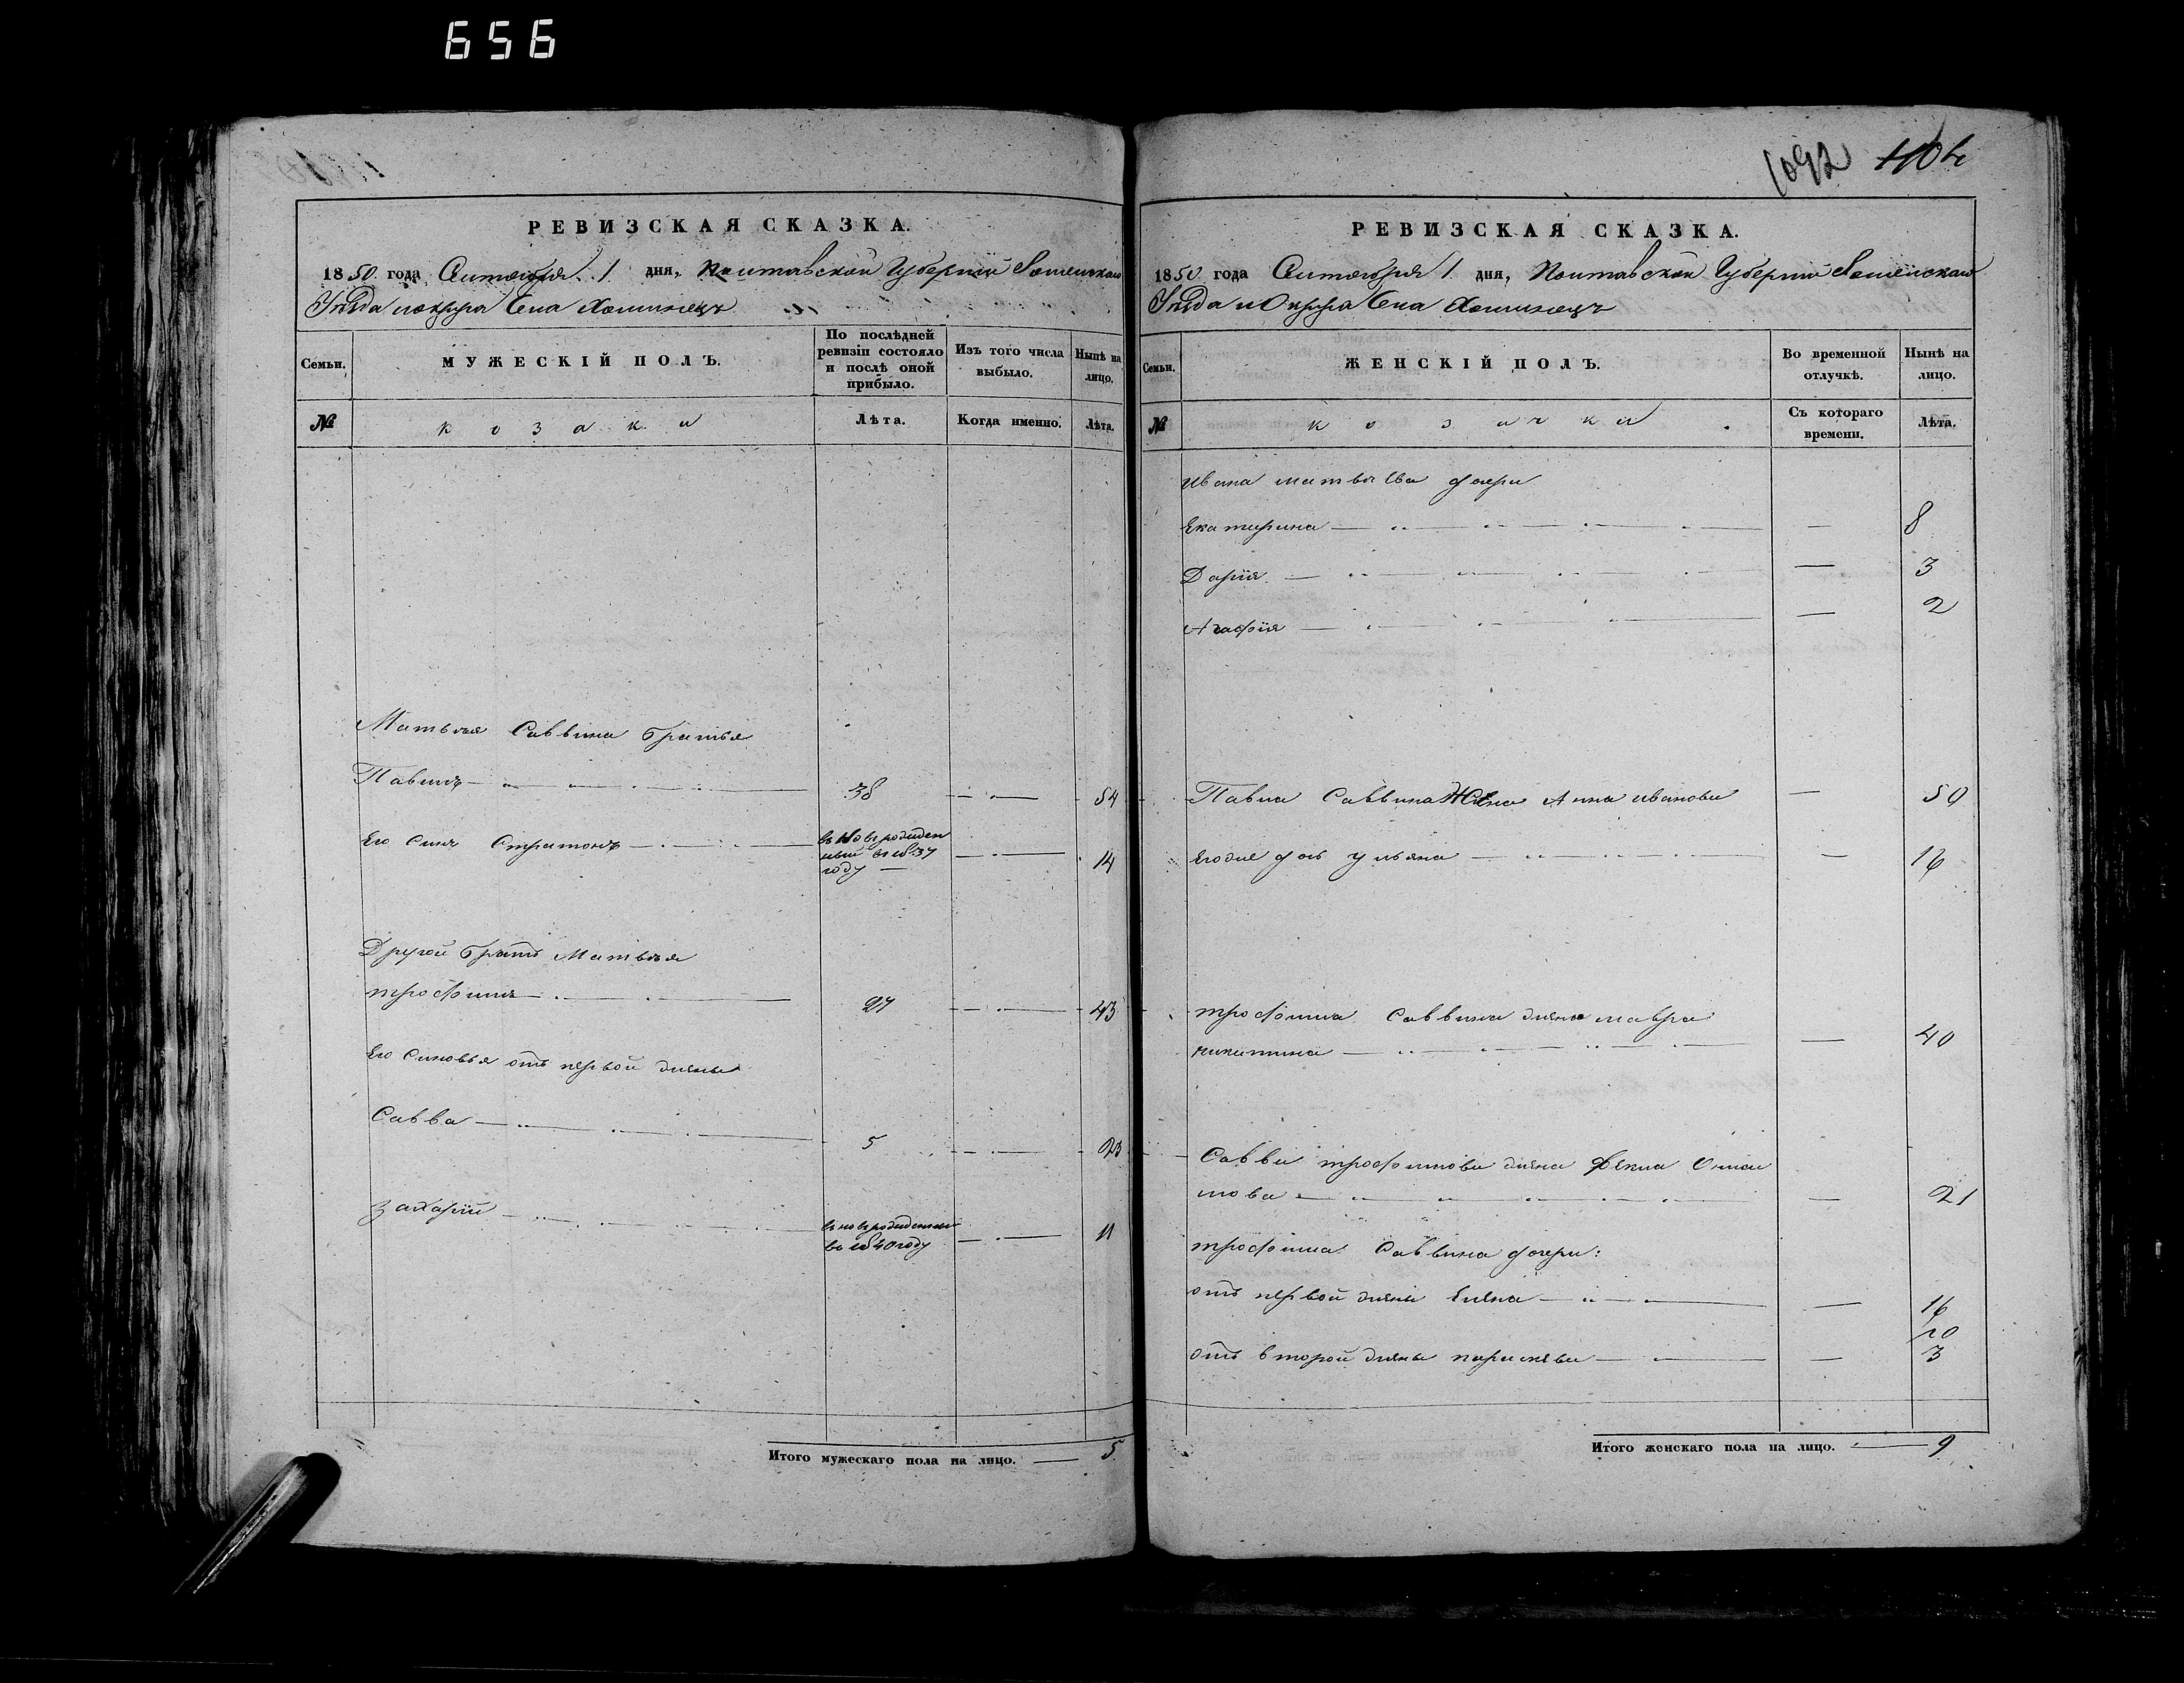 656
1092 1104
РЕВИЗСКАЯ СКАЗКА.
1850 года Сентября 1 дня, Полтавской Губернии
Уѣзда и округа Села
Семьи.
МУЖЕСКІЙ ПОЛЪ.
По послѣдней ревизіи состояло и послѣ оной прибыло.
Изъ того числа выбыло.
Нынѣ на лицо.
№
козаки
Лѣта.
Когда именно.
Лѣта.
Матвѣя Саввина братья
Павелъ 38 54
Его Синъ Стратонъ 14
в 1837
году
Другой братъ Матвѣя
трофимъ 27 43
Его Синовья отъ первой жены
Савва 5 23
Захарій 11
в 1840 году
Итого мужескаго пола на лицо. 5
РЕВИЗСКАЯ СКАЗКА.
1850 года Сентября 1 дня, Полтавской Губернии
Уѣзда и Округа Села
Семьи.
ЖЕНСКІЙ ПОЛЪ.
Во временной отлучкѣ.
Нынѣ на лицо.
№
козачки
Съ котораго времени.
Лѣта.
Ивана матвѣева дочери
Екатерина 8
Дарія 3
Агафія 2
Павла Саввина Жена Анна иванова 50
Егоже дочь ульяна 16
трофима Саввина жена мавра
никитина 40
Саввы трофимова жена Фекла
мова 21
трофима Саввина дочери:
отъ первой жены Елена 16
10
отъ второй жены параскева 3
Итого женскаго пола на лицо. 9